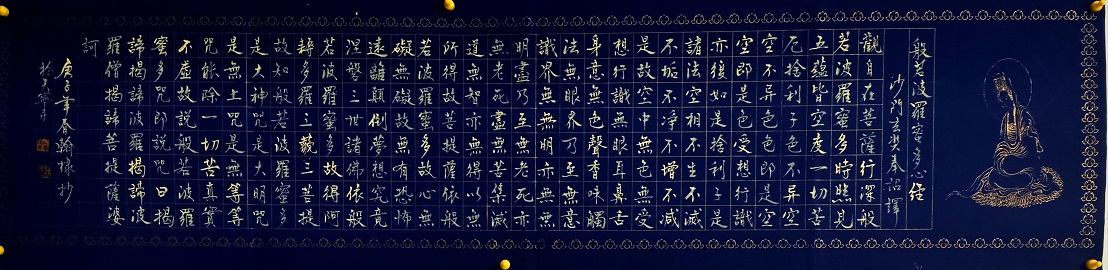 般若波羅蜜多心經
沙門玄奘奉詔譯
觀自在菩薩行深般
若波羅蜜多時照見
五蘊皆空度一切苦
厄捨利子色不异空
空不异色色即是空
空即是色受想行識
亦復如是捨利子是
諸法空相不生不滅
不垢不淨不增不減
是故空中無色無受
想行識無眼耳鼻舌
身意無色聲香味觸
法無眼界乃至無意
識界無無明亦無無
明盡乃至無老死亦
無老死盡無苦集滅
道無智亦無得以無
所得故菩提薩依般
若波羅蜜多故心無
礙無礙故無有恐怖
遠離顛倒夢想究竟
涅槃三世諸佛依般
若波羅蜜多故得阿
耨多羅三藐三菩提
故知般若波羅蜜多
是大神咒是大明咒
是無上咒是無等等
咒能除一切苦真實
不虛故說般若波羅
蜜多咒即說咒曰揭
諦揭諦波羅揭諦波
羅僧揭諦菩提薩婆
訶
庚子年春翰抄
於